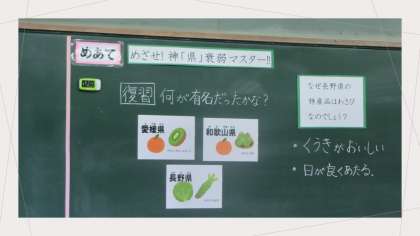 めあて
めざせ!神「県」衰弱マスター!!
復習 何が有名だったかな?
愛媛県
和歌山県
長野県
なぜ長野県の
特産品はわさび
なのでしょう?
・くうきがおいしい
・日が良くあたる。